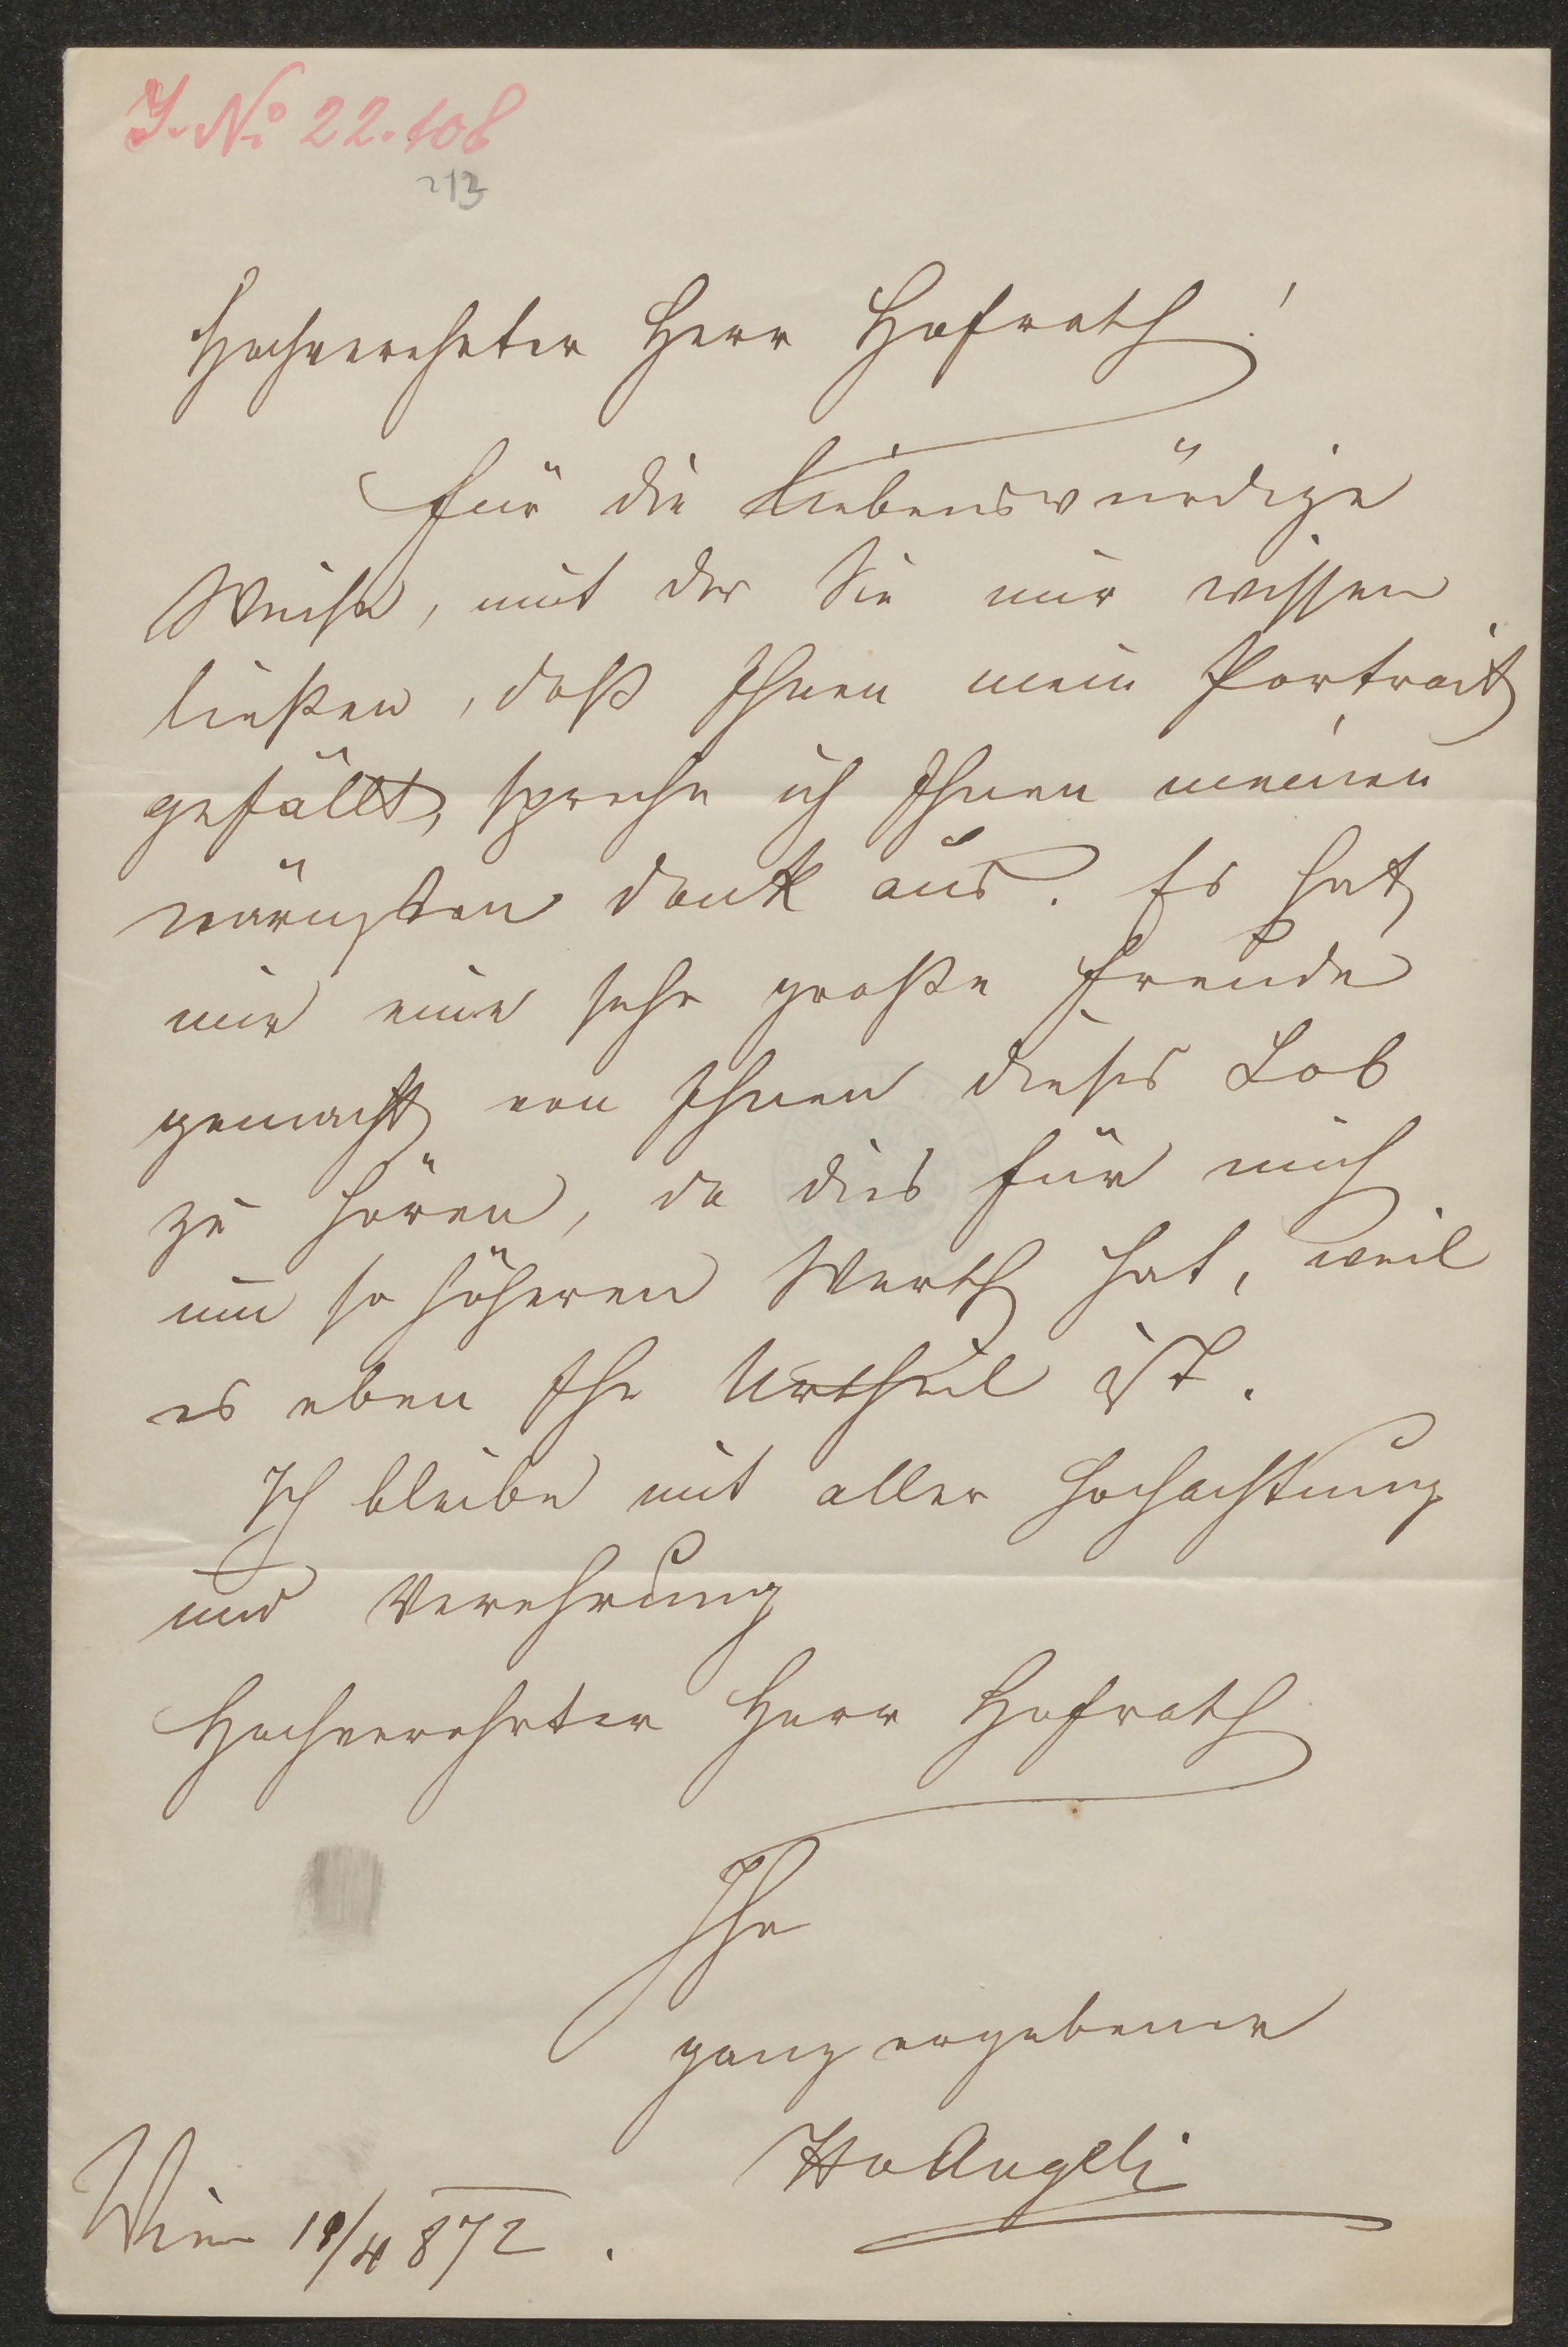 I. N° 22.108
213
Hochverehrter Herr Hofrath!
Für die Liebenswürdige
Weise, mit der Sie mir wissen
ließen, daß Ihnen mein Portrait
gefällt, spreche ich Ihnen meinen
wärmsten Dank aus. Es hat
mir eine sehr große Freude
gemacht von Ihnen dieses Lob
zu hören, da dies für mich
um so höheren Werth hat, weil
es eben Ihr Urtheil ist.
Ich bleibe mit aller Hochachtung
und Verehrung
Hochverehrter Herr Hofrath
Ihr
ganz ergebener
HvAngeli
Wien 18/4 872.